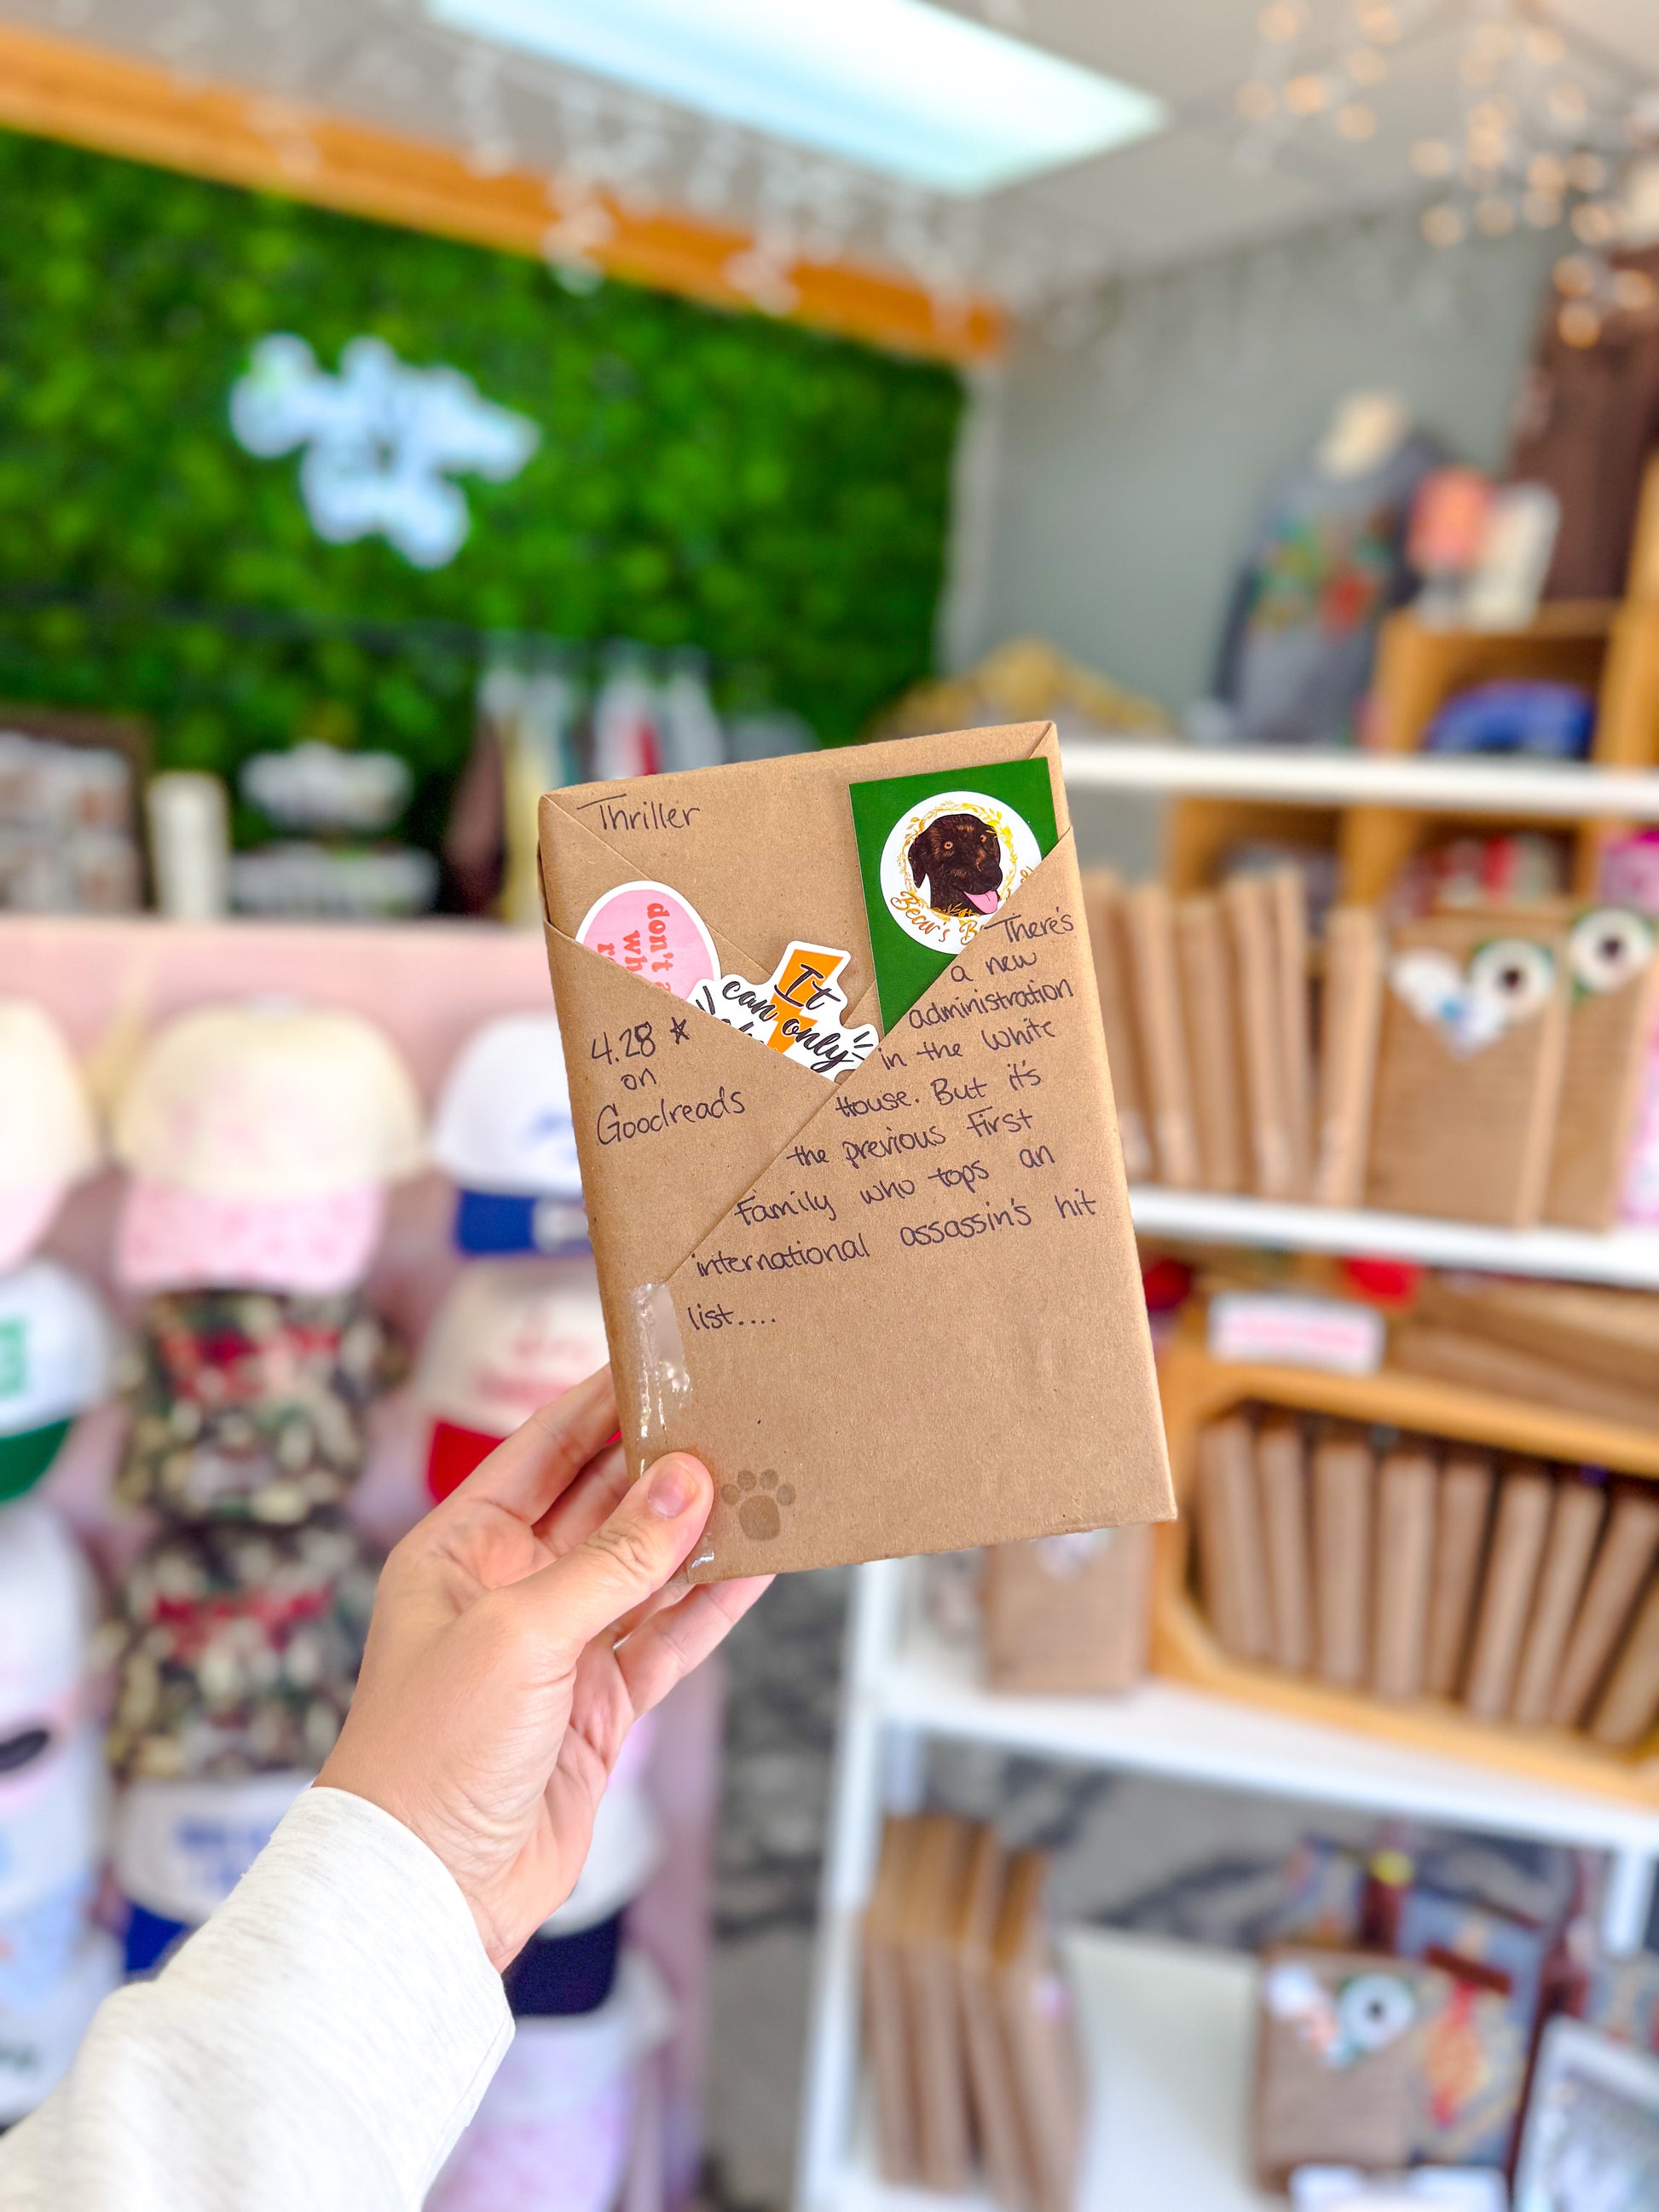 Thriller
don't
wh
It
can only
Bear's B
4.28 ★
on
Goodreads
There's
a new
administration
in the White
House. But it's
the previous First
Family who tops an
international assassin's hit
list....